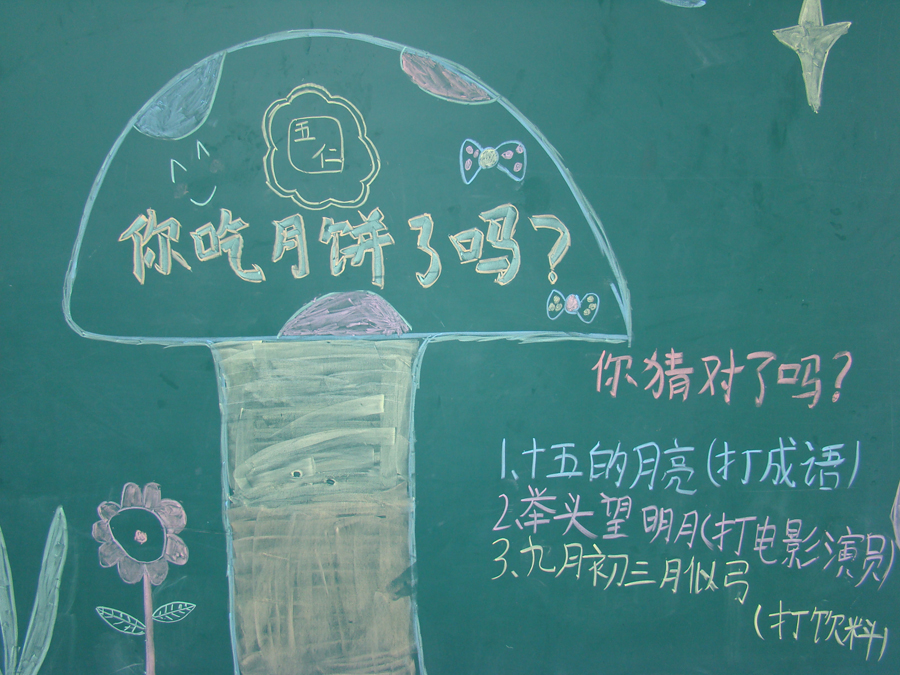 五
仁
你吃月饼了吗?
你猜对了吗?
1、十五的月亮(打成语)
2、举头望明月(打电影演员)
3、九月初三月似弓
(打饮料)